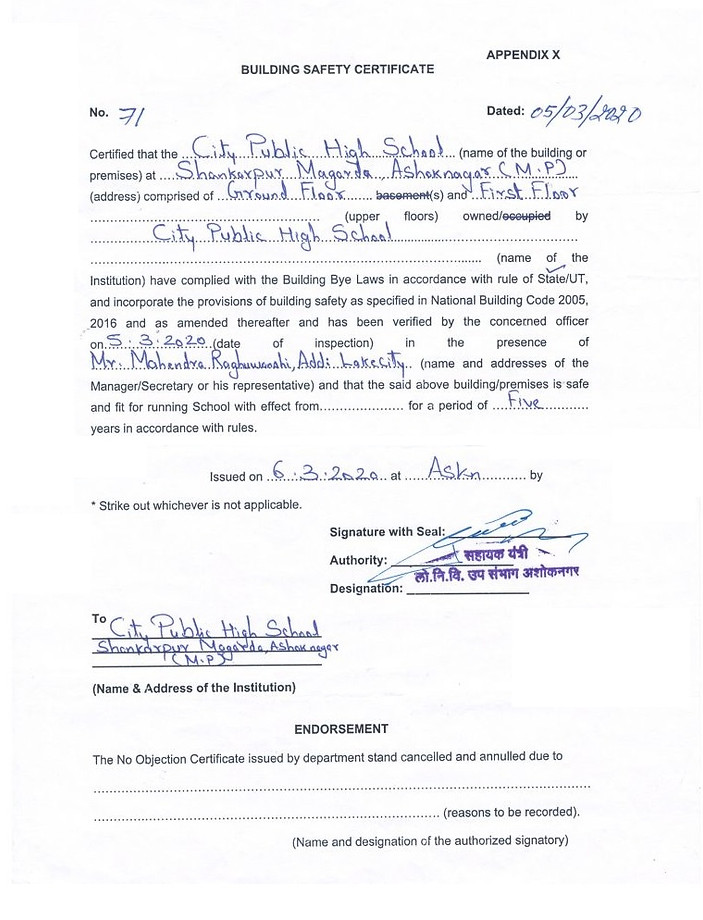 APPENDIX X
BUILDING SAFETY CERTIFICATE
No. 71 Dated: 05/03/2020
Certified that the ...City Public High School... (name of the building or
premises) at ....Shankarpur Magarda, Ashoknagar (M.P)....
(address) comprised of ..Ground Floor....... basement(s) and First Floor
.................................................................. (upper floors) owned/occupied by
..................City Public High School..................................................
............................................................................................................... (name of the
Institution) have complied with the Building Bye Laws in accordance with rule of State/UT,
and incorporate the provisions of building safety as specified in National Building Code 2005,
2016 and as amended thereafter and has been verified by the concerned officer
on..5.3.2020.(date of inspection) in the presence of
Mr. Mahendra Raghuwanshi, Add: Lake City.. (name and addresses of the
Manager/Secretary or his representative) and that the said above building/premises is safe
and fit for running School with effect from....................... for a period of ....Five............
years in accordance with rules.
Issued on ..6.3.2020.. at ......Askn............. by
* Strike out whichever is not applicable.
Signature with Seal:
Authority: सहायक यंत्री
लो.नि.वि. उप संभाग अशोकनगर
Designation:
To City Public High School
Shankarpur Magarda, Ashok nagar
(M.P)
(Name & Address of the Institution)
ENDORSEMENT
The No Objection Certificate issued by department stand cancelled and annulled due to
...............................................................................................................................................
................................................................................................... (reasons to be recorded).
(Name and designation of the authorized signatory)